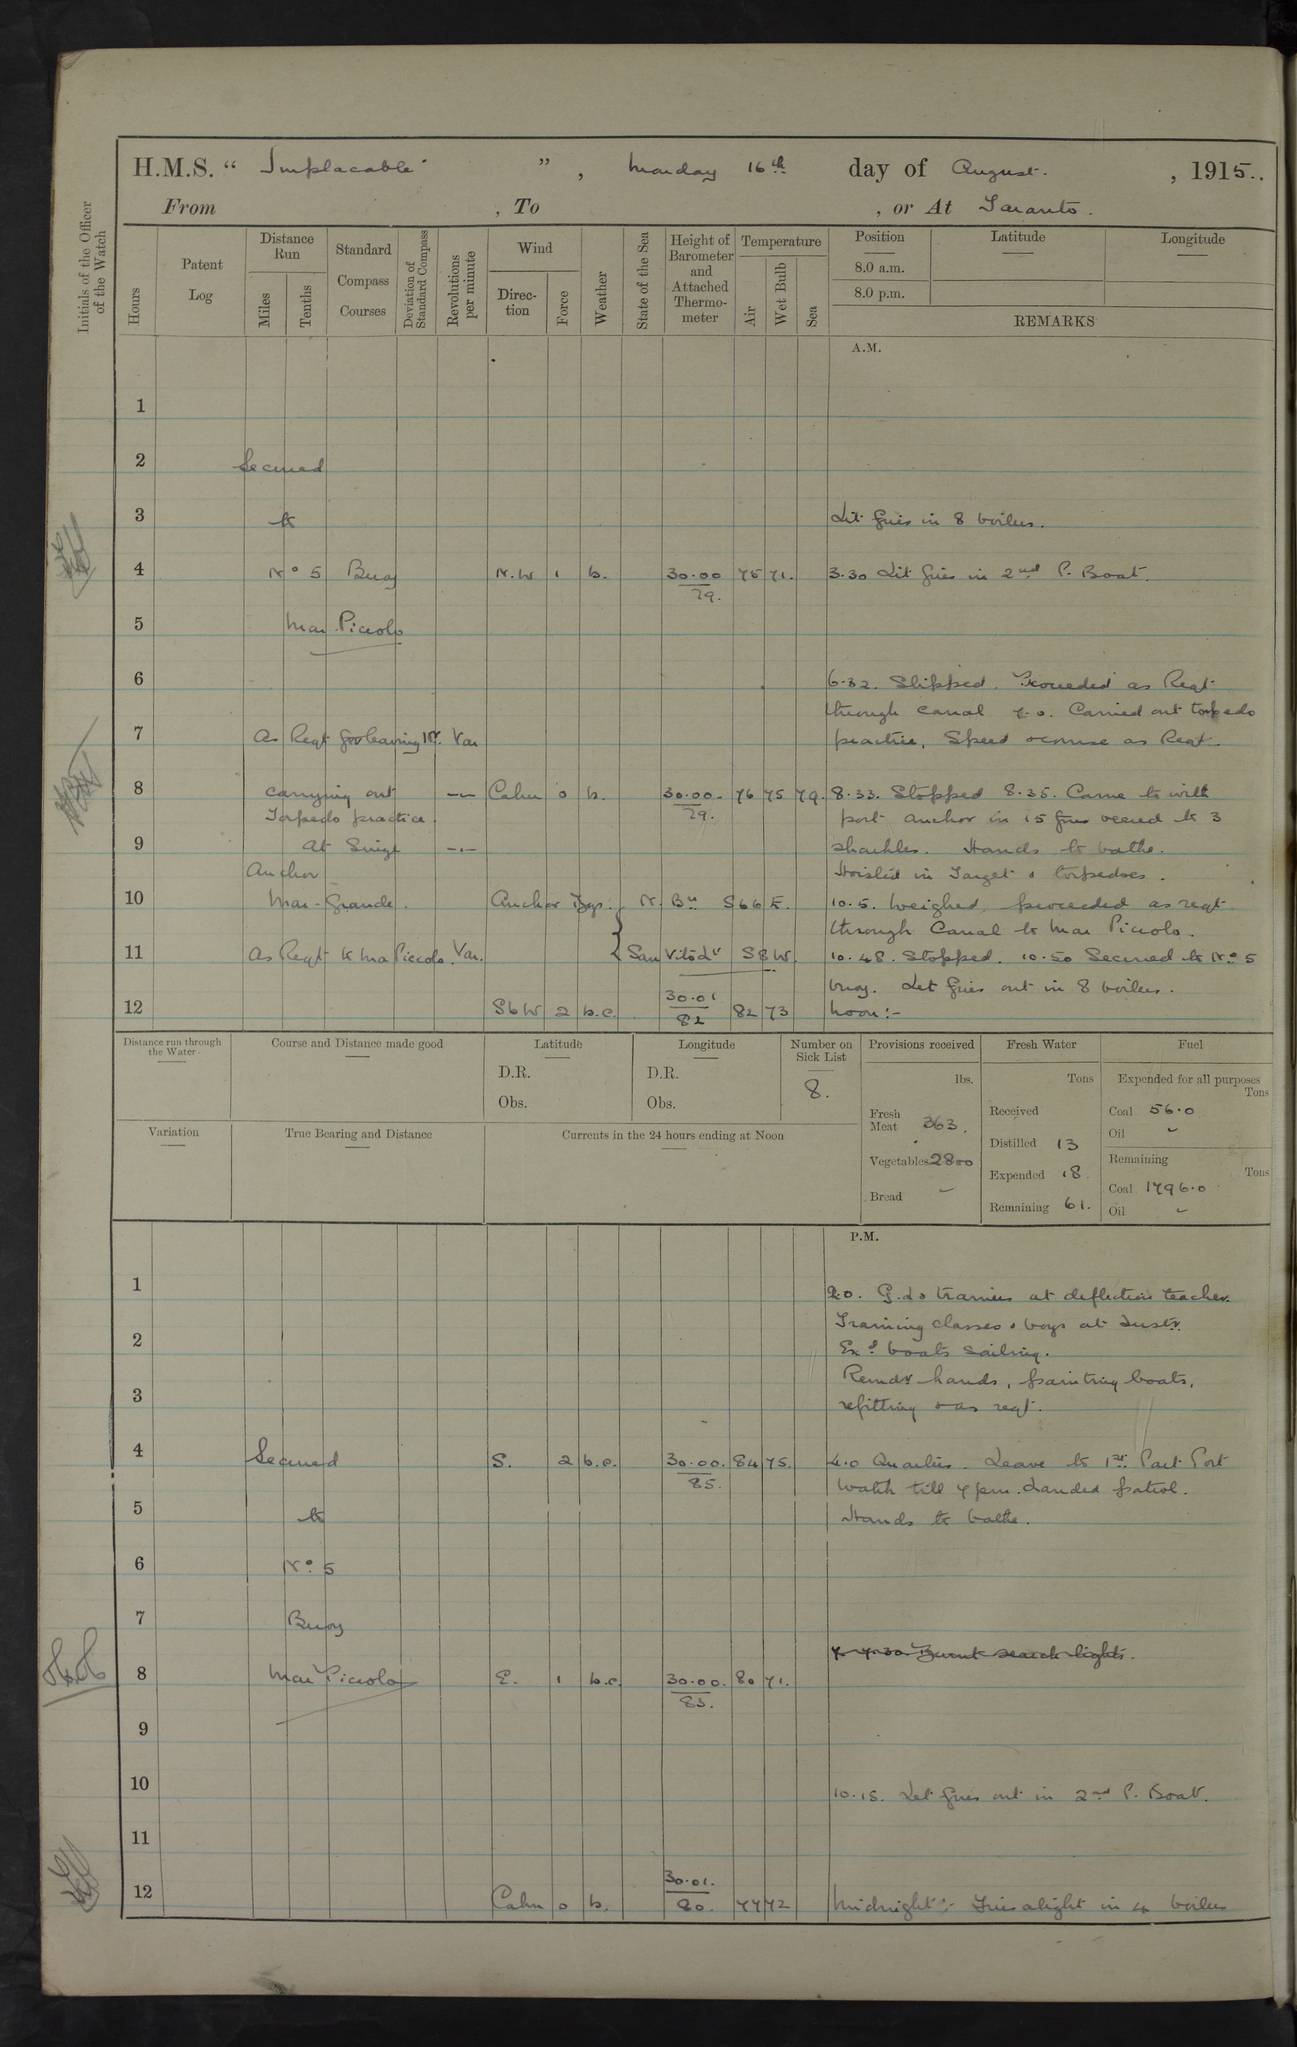 H.M.S. “ Implacable ” , Monday 16th day of August. , 1915.
From , To , or At Taranto.
Initials of the Officer of the Watch
Hours
Patent Log
Distance Run
Miles
Tenths
Standard Compass Courses
Deviation of Standard Compass
Revolutions per minute
Wind
Direction
Force
Weather
State of the Sea
Height of Barometer and Attached Thermometer
Temperature
Air
Wet Bulb
Sea
Position Latitude Longitude
8.0 a.m.
8.0 p.m.
REMARKS
A.M.
1
2 Secured
3 to Lit fires in 8 boilers.
4 No 5 Buoy N.W 1 b. 30.00 75 71. 3.30 Lit fires in 2nd P. Boat.
79.
5 Mar Piccolo
6 6.32. Slipped. Proceeded as Reqt
through canal 7.0. Carried out torpedo
7 As Reqt for leaving Hr. Var practice. Speed & course as Reqt.
8 carrying out Calm 0 b. 30.00 76 75 79. 8.33. Stopped 8.35. Came to with
Torpedo practice. 79. port anchor in 15 fms veered to 3
9 At Single shackles. Hands to bathe.
Anchor Hoisted in Target & torpedoes.
10 Mar-Grande. Anchor Bgs. N. Bn S66E. 10.5. Weighed, proceeded as reqt
through Canal to Mar Piccolo.
11 As Reqt to Ma Piccolo. Var. San Vito Lt S8W. 10.48. Stopped. 10.50 Secured to No 5
buoy. Let fires out in 8 boilers.
12 SbW 2 b.c. 30.01 82 73 Noon:-
82
Distance run through the Water
Course and Distance made good
Latitude
D.R.
Obs.
Longitude
D.R.
Obs.
Number on Sick List
8.
Provisions received
lbs.
Fresh Meat 363.
Vegetables 2800
Bread -
Fresh Water
Tons
Received
Distilled 13
Expended 18
Remaining 61.
Fuel
Expended for all purposes
Tons
Coal 56.0
Oil -
Remaining
Tons
Coal 1796.0
Oil -
Variation
True Bearing and Distance
Currents in the 24 hours ending at Noon
P.M.
1 2.0. G.Ls trainers at deflection teacher.
Training classes & boys at Instr.
2 Exd boats sailing.
Remdr hands, painting boats,
3 refitting & as reqt.
4 Secured S. 2 b.c. 30.00. 84 75. 4.0 Quarters. Leave to 1st Part Port
85. Watch till 7 pm. Landed patrol.
5 to Hands to bathe.
6 No 5
7 Buoy
7.30 Burnt search lights.
8 Mar Piccolo E. 1 b.c. 30.00. 80 71.
83.
9
10 10.15. Let fires out in 2nd P. Boat.
11
12 Calm 0 b. 30.01. 77 72 Midnight:- Fires alight in 4 boilers
80.